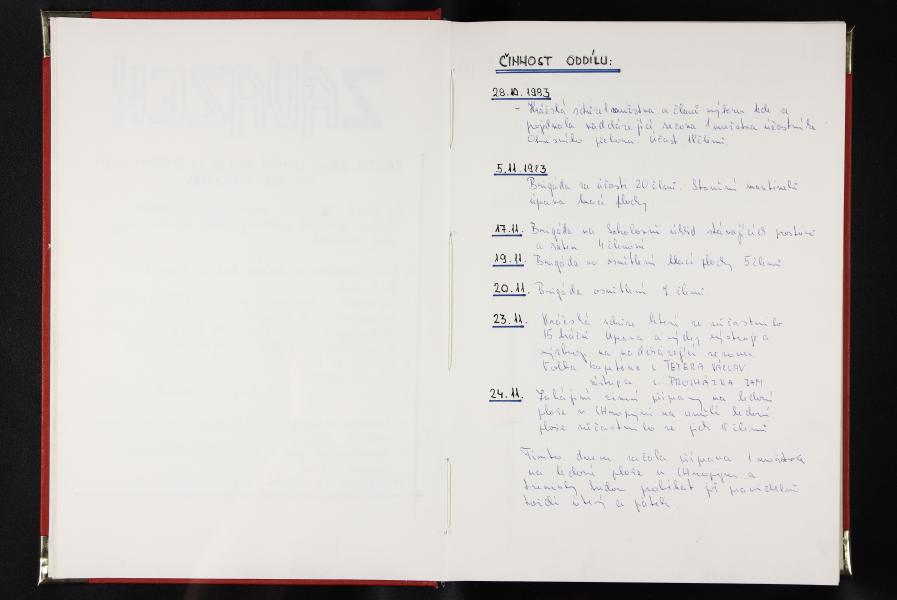 ČINNOST ODDÍLU:
28.10.1983
- Hráčská schůze mužstva a členů výboru kde a
pojednala nadcházející sezona 1 mužstva účastníka
Okresního přeboru. Účast 18 členů.
5.11.1983
Brigáda za účasti 20 členů. Stavění mantinelů
úprava hrací plochy
17.11. Brigáda na Sokolovně úklid stávajících prostorů
a šaten 4 členové
19.11. Brigáda na osvětlení hrací plochy 5 členů
20.11. Brigáda osvětlení 7 členů.
23.11. Hráčská schůze které se zúčastnilo
15 hráčů Úprava a výdej výstroje a
výzbroj na nadcházející sezonu
Volba kapitána s. TETERA VÁCLAV
zástupce s. PROCHÁZKA JAN
24.11. Zahájení zimní přípravy na ledové
ploše v Chropyni na umělé ledové
ploše zúčastnilo se jich členů
Tímto dnem začala příprava 1 mužstva
na ledové ploše v Chropyni a
tréninky budou probíhat již pravidelně
každé úterý a pátek.